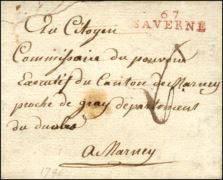 Au Citoyen
67
SAVERNE
Commissaire du pouvoir
Executif du Canton de Marney
proche de gray departement
du doubs
A Marney